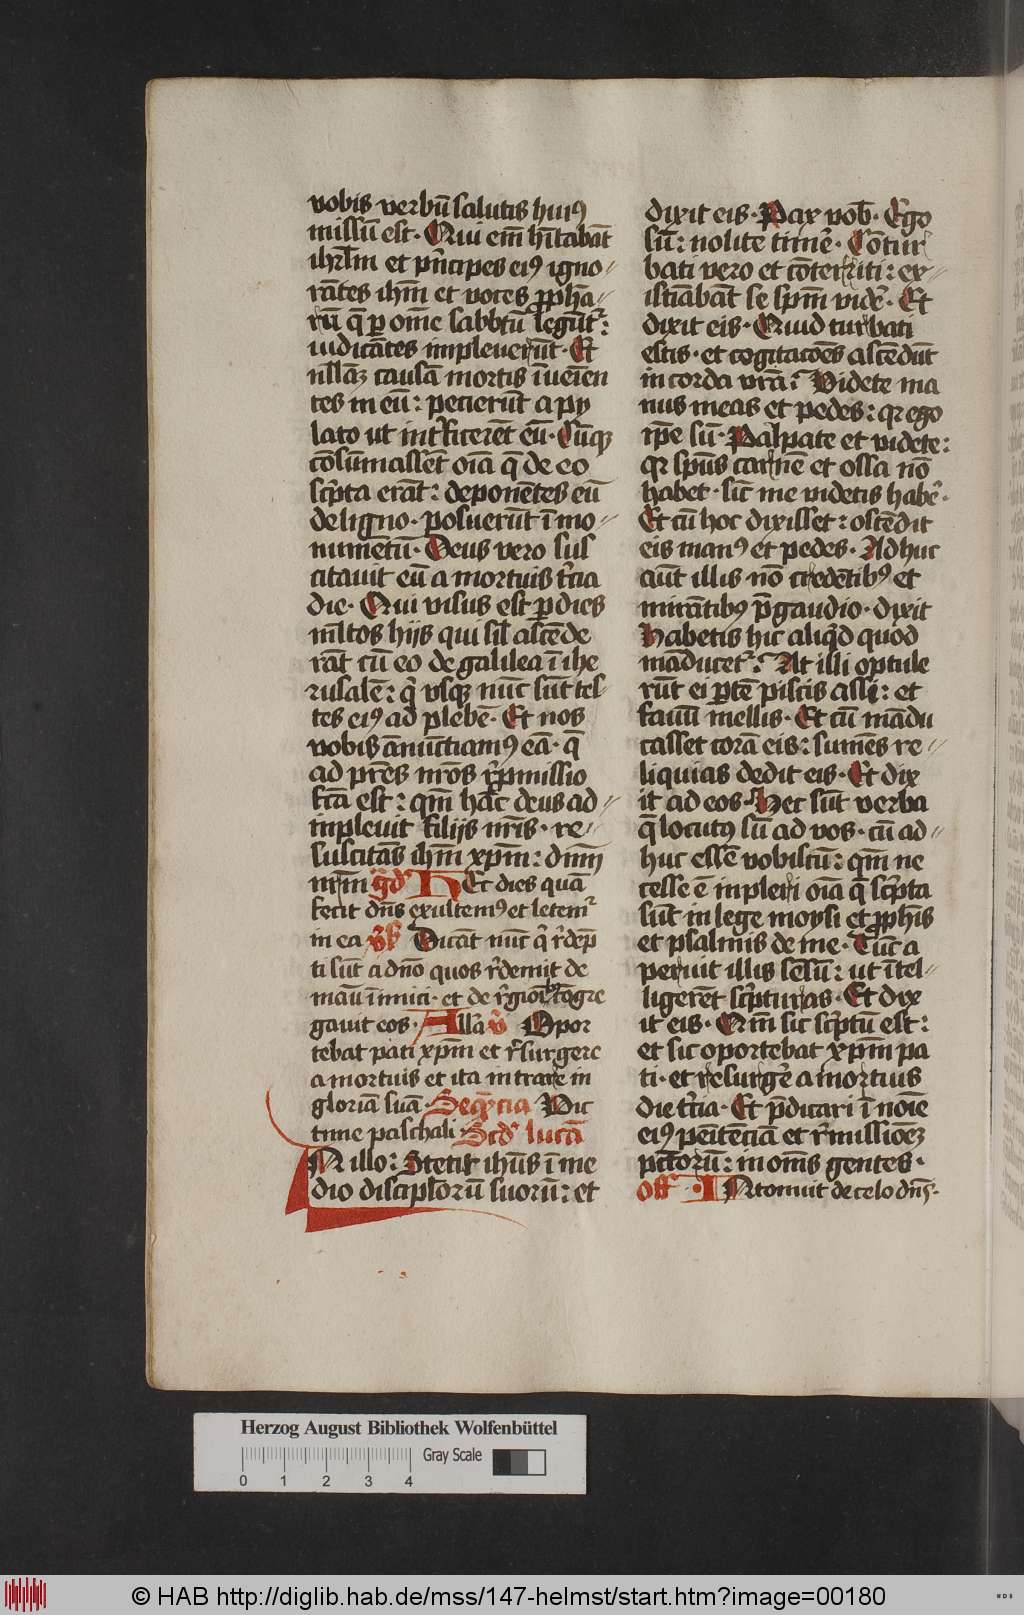 vobis verbū salutis huiꝰ
missū est · Qui em̄ hītabāt
ihrlm̄ et pͥncipes eiꝰ igno⸗
rātes ihm̄ et voces ꝓpha⸗
rū q̄ ꝑ om̄e sabbtū legūtᷣ :
iudicātes impleuerūt · Et
nllāʒ causā mortis īueīen
tes in eū : pecierūt a py
lato ut intficerēt eū · Cūqʒ
cōsūmassēt oīa q̄ de eo
scͥpta erāt : deponētes eū
de ligno · posuerūt ī mo⸗
numētū · Deus vero sus
citauit eū a mortuis tͨcia
die · Qui visus est ꝑ dies
ml̄tos hijs qui sil̄ ascēde
rāt cū eo de galilea ī ihe
rusalē : qͥ vsqʒ nūc sūt tes⸗
tes eiꝰ ad plebē · Et nos
vobis ānūctiamꝰ eā · q̄
ad pr̄es nr̄os rͤpmissio
fc̄a est : qm̄ hāc deus ad⸗
inpleuit filijs nr̄is · re⸗
suscitās ihm̄ xpm̄ : dnm̄
nrm̄ gͣdͣ HEc dies quā
fecit dn̄s exultemꝰ et letemᷣ
in ea v̄ꝭ Dicāt nūc qͥ rͤdēp
ti sūt a dn̄o quos rͤdemit de
manū īmici · et de rͤgioībꝰ ꝯgre
gauit eos · Alla v̄ Opor
tebat pati xpm̄ et rͤsurgere
a mortuis et ita intrare in
gloriā suā · Seqēcia Vic
time paschali · Scdͫ lucā
IN illo : Stetit ihūs ī me
dio discipl̄orū suorū : et
dixit eis · Pax vob̄ · Ego
sū : nolite timē · Cōtur
bati vero et cōterriti : ex⸗
istīabāt se spm̄ vidē · Et
dixit eis · Quid turbati
estis · et cogitacōes ascēdūt
in corda vrā : Videte ma
nus meas et pedes : qr ego
ip̄e sū · Palpate et videte :
qr spūs carnē et ossa nō
habet · sic̄ me videtis habē ·
Et cū hoc dixisset : ostēdit
eis manꝰ et pedes · Adhuc
aūt illis nō credētibꝰ et
mirātibꝰ p̄ gaudio · dixit
Habetis hic aliqͥd quod
māducetᷣ : At illi optule
rūt ei ꝑtē piscis assi : et
fauū mellis · Et cū mādu
casset corā eis : sumēs re⸗
liquias dedit eis · Et dix
it ad eos · Hec sūt verba
q̄ locutꝰ sū ad vos · cū ad⸗
huc essē vobiscū : qm̄ ne
cesse ē inpleri oīa q̄ scͥpta
sūt in lege moysi et ꝓph̄is
et psalmis de me · Tūc a
peruit illis sēsū : ut ītel⸗
ligerēt scͥpturas · Et dix
it eis · Qm̄ sic scͥptū est :
et sic oportebat xpm̄ pa
ti · et resurgē a mortuis
die tͨcia · Et p̄dicari ī noīe
eiꝰ penitēciā et rͤmissioēʒ
pcc̄orū : in om̄s gentes ·
Off · INtonuit de celo dn̄s ·
Herzog August Bibliothek Wolfenbüttel
Gray Scale
0 1 2 3 4
© HAB http://diglib.hab.de/mss/147-helmst/start.htm?image=00180